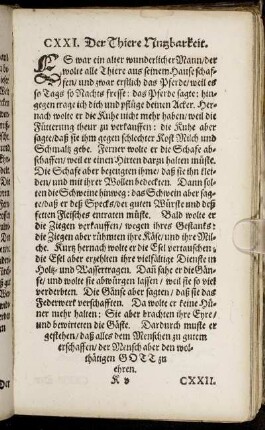 CXXI. Der Thiere Nutzbarkeit.
ES war ein alter wunderlicher Mann / der
wolte alle Thiere aus seinem Hause schaf-
fen / und zwar erstlich das Pferd / weil es
so Tags so Nachts fresse: das Pferd sagte: hin-
gegen trage ich dich und pflüge deinen Acker. Her-
nach wolte er die Kuhe nicht mehr haben / weil die
Fütterung theur zu verkauffen: die Kuhe aber
sagte / daß sie ihm gegen schlechter Kost Milch und
Schmaltz gebe. Ferner wolte er die Schafe ab-
schaffen / weil er einen Hirten darzu halten müste.
Die Schafe aber bezeugten ihme / daß sie ihn klei-
den / und mit ihrer Wollen bedeckten. Dann sol-
ten die Schweine hinweg: das Schwein aber sag-
te / daß er deß Specks / der guten Würste und deß
fetten Fleisches entraten müste. Bald wolte er
die Ziegen verkauffen / wegen ihres Gestanks:
die Ziegen aber rühmeten ihre Käse / und ihre Mil-
che. Kurtz hernach wolte er die Esel vertauschen;
die Esel aber erzehlten ihre vielfältige Dienste in
Holtz- und Wassertragen. Dañ sahe er die Gän-
se / und wolte sie abwürgen lassen / weil sie so viel
verderbten. Die Gänse aber sagten / daß sie das
Federwerk verschafften. Da wolte er keine Hü-
ner mehr halten: Sie aber brachten ihre Eyre /
und bewirteten die Gäste. Dardurch muste er
gestehen / daß alles dem Menschen zu gutem
erschaffen / der Mensch aber den wol-
thätigen GOTT zu
ehren.
K v
CXXII.